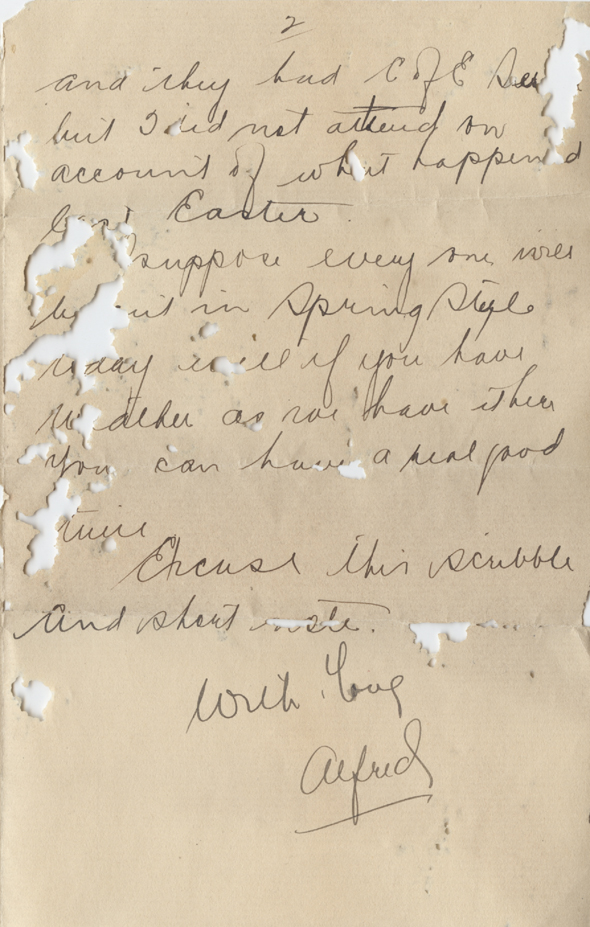 2
and they had C of E Ser
but I did not attend on
account of what happened
last Easter.
suppose every one will
be out in Spring Style
today well if you have
Weather as we have then
You can have a real good
time
Excuse this scribble
and short note.
With Love
Alfred